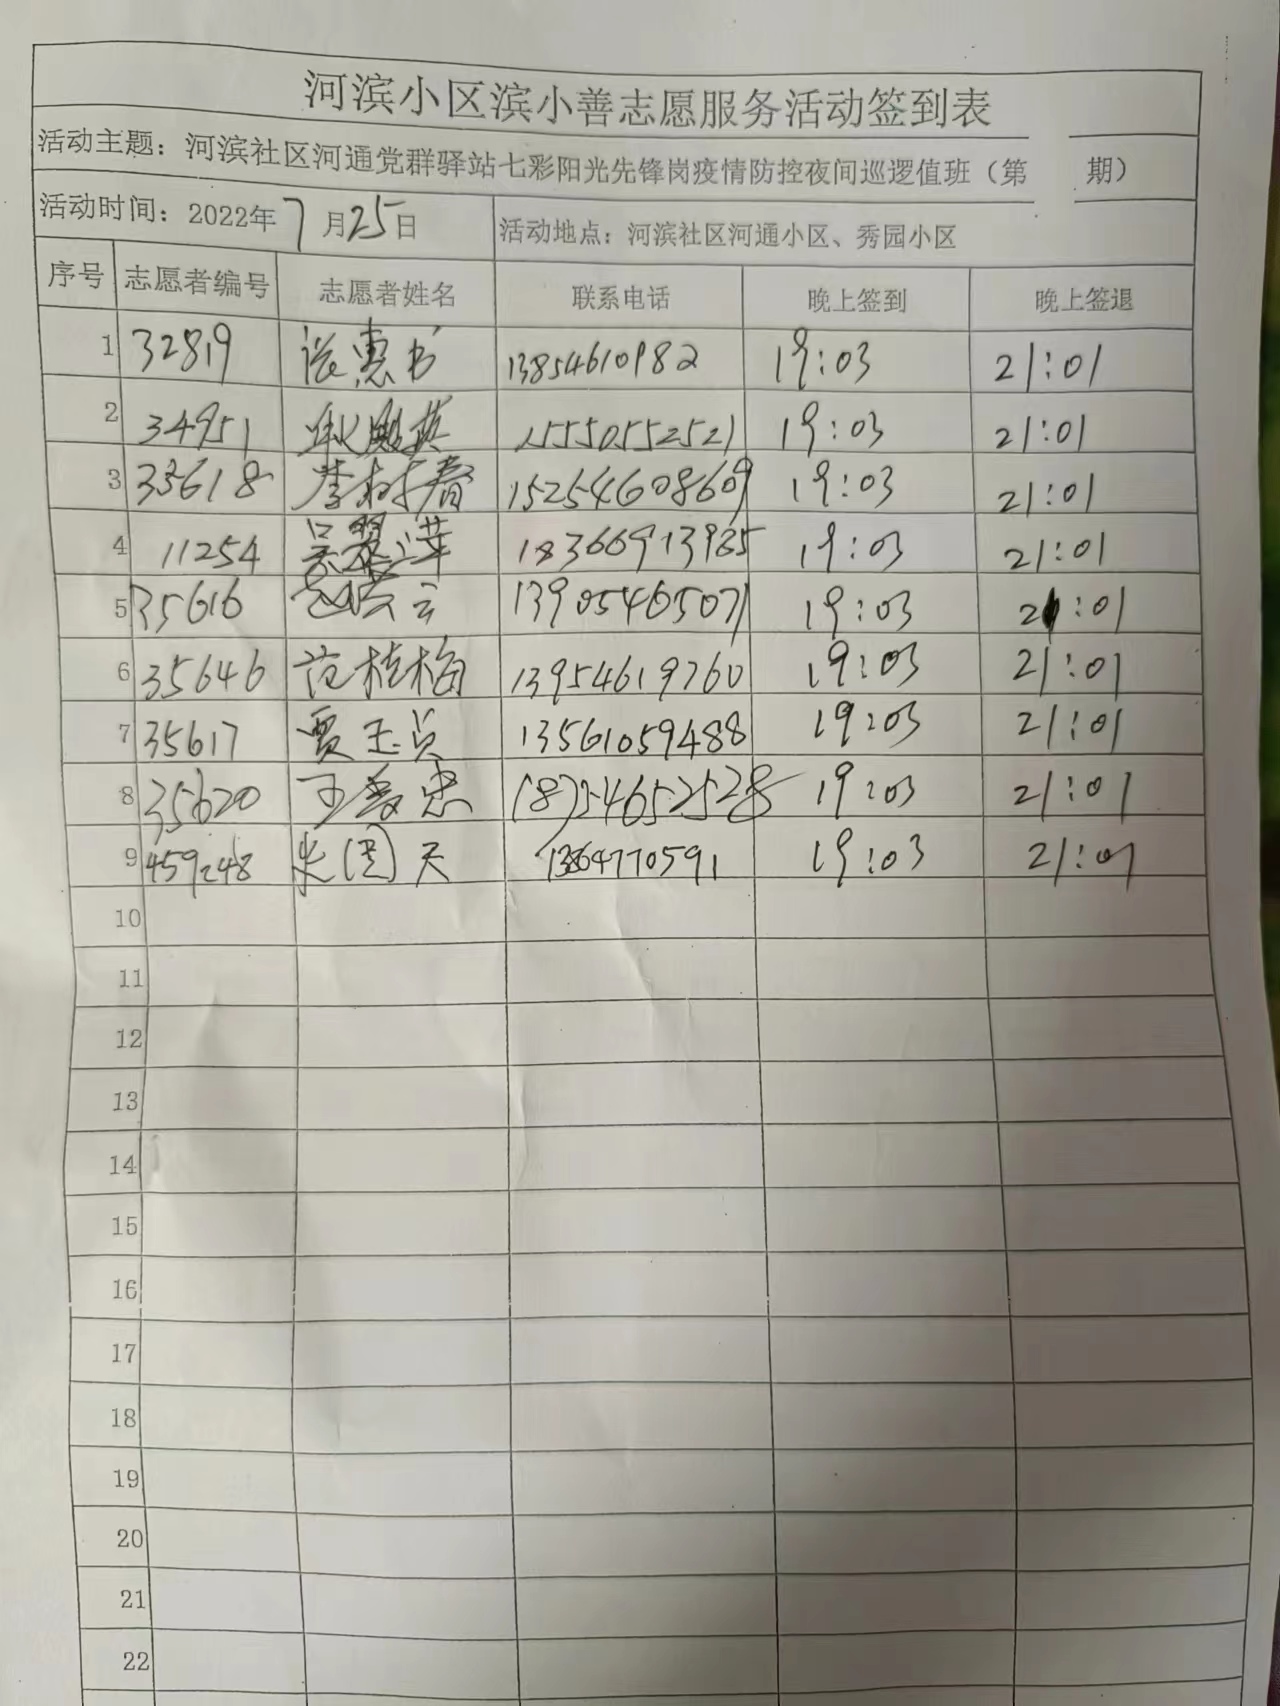 河滨小区滨小善志愿服务活动签到表
活动主题：河滨社区河通党群驿站七彩阳光先锋岗疫情防控夜间巡逻值班（第 期）
活动时间：2022年7月25日 活动地点：河滨社区河通小区、秀园小区
序号 志愿者编号 志愿者姓名 联系电话 晚上签到 晚上签退
1 32819 13854610982 19:03 21:01
2 34951 15550552521 19:03 21:01
3 33618 李树春 15254608609 19:03 21:01
4 11254 18366913985 19:03 21:01
5 35616 13905465071 19:03 21:01
6 35646 范桂梅 13954619760 19:03 21:01
7 35617 贾玉贞 13561059488 19:03 21:01
8 35620 王爱忠 18254652528 19:03 21:01
9 459248 天 13647770591 19:03 21:01
10
11
12
13
14
15
16
17
18
19
20
21
22